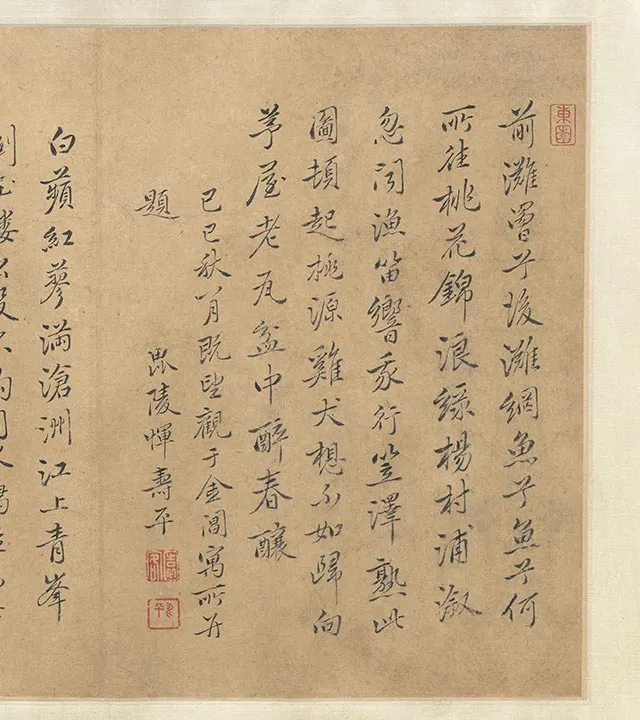 東園
前灘罾兮後灘網魚兮魚兮何
所往桃花錦浪綠楊村浦漵
忽闻漁笛響我行笠澤熟此
圖頓起桃源雞犬想不如歸向
茅屋老瓦盆中醉春釀
己巳秋八月既望觀于金閶寓所并
題
毗陵惲壽平
白蘋紅蓼滿滄洲江上青峯